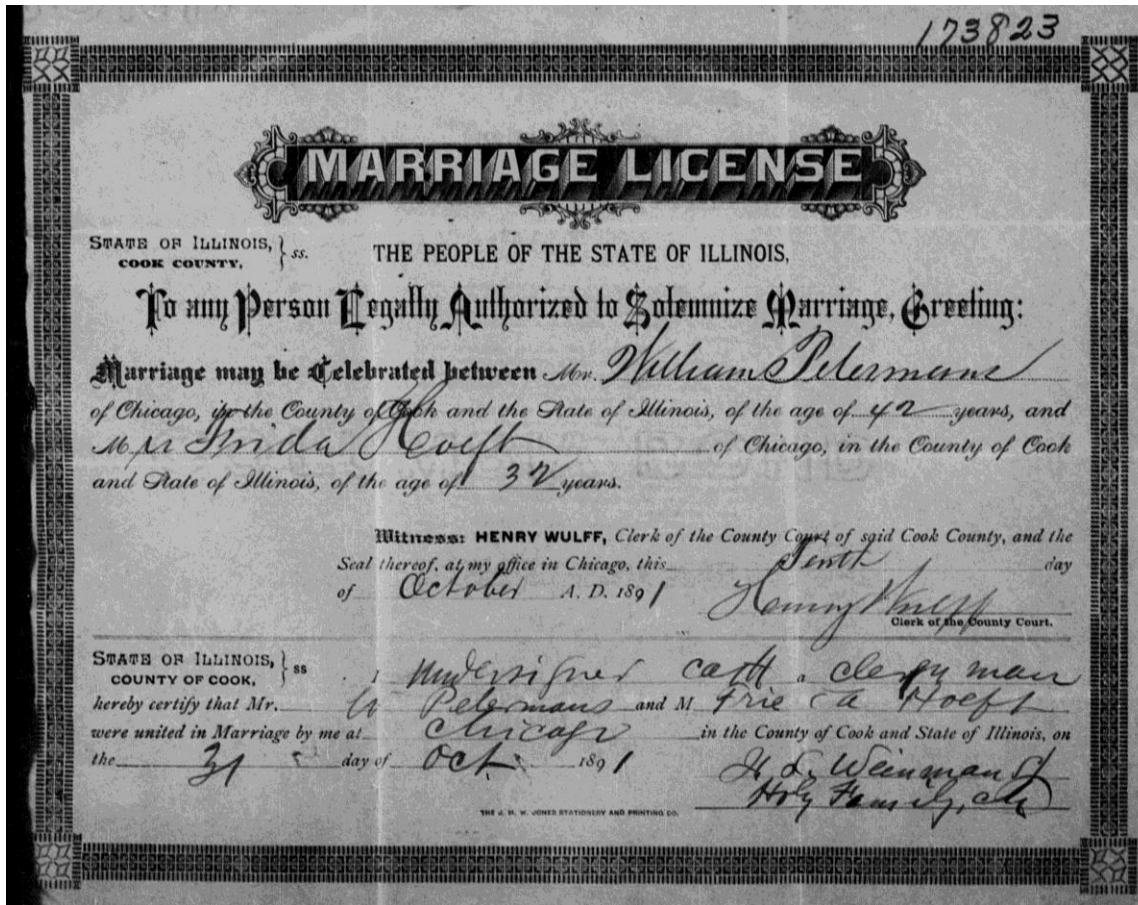 173823
MARRIAGE LICENSE
STATE OF ILLINOIS, } ss.
COOK COUNTY,
THE PEOPLE OF THE STATE OF ILLINOIS,
To any Person Legally Authorized to Solemnize Marriage, Greeting:
Marriage may be Celebrated between Mr. William Petermans
of Chicago, in the County of Cook and the State of Illinois, of the age of 42 years, and
M Frida Hoeft of Chicago, in the County of Cook
and State of Illinois, of the age of 32 years.
Witness: HENRY WULFF, Clerk of the County Court of said Cook County, and the
Seal thereof, at my office in Chicago, this Tenth day
of October A. D. 1891 Henry Wulff
Clerk of the County Court.
STATE OF ILLINOIS, } ss
COUNTY OF COOK,
I undersigned cath a clergyman
hereby certify that Mr. W Petermans and M Frieda Hoeft
were united in Marriage by me at Chicago in the County of Cook and State of Illinois, on
the 31 day of Oct. 1891
Weinman SJ
Holy Family, ch
THE J. M. W. JONES STATIONERY AND PRINTING CO.